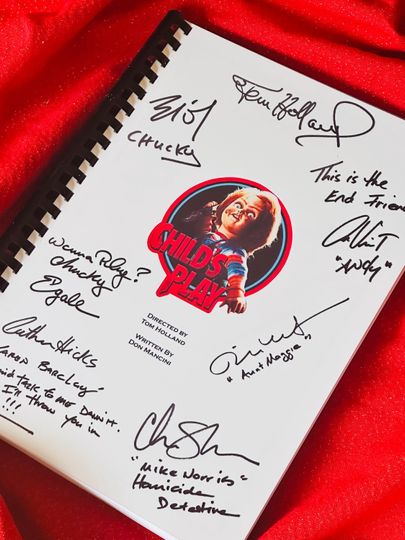 Tom Holland
CHUCKY
This is the
End Friend
"ANDY"
CHILD'S
PLAY
Wanna Play?
Chucky
DIRECTED BY
TOM HOLLAND
WRITTEN BY
DON MANCINI
"Aunt Maggie"
Catherine Hicks
KAREN BARCLAY
said talk to me Damn it.
I'll throw you in
!!!
"Mike Norris"
Homicide
Detective